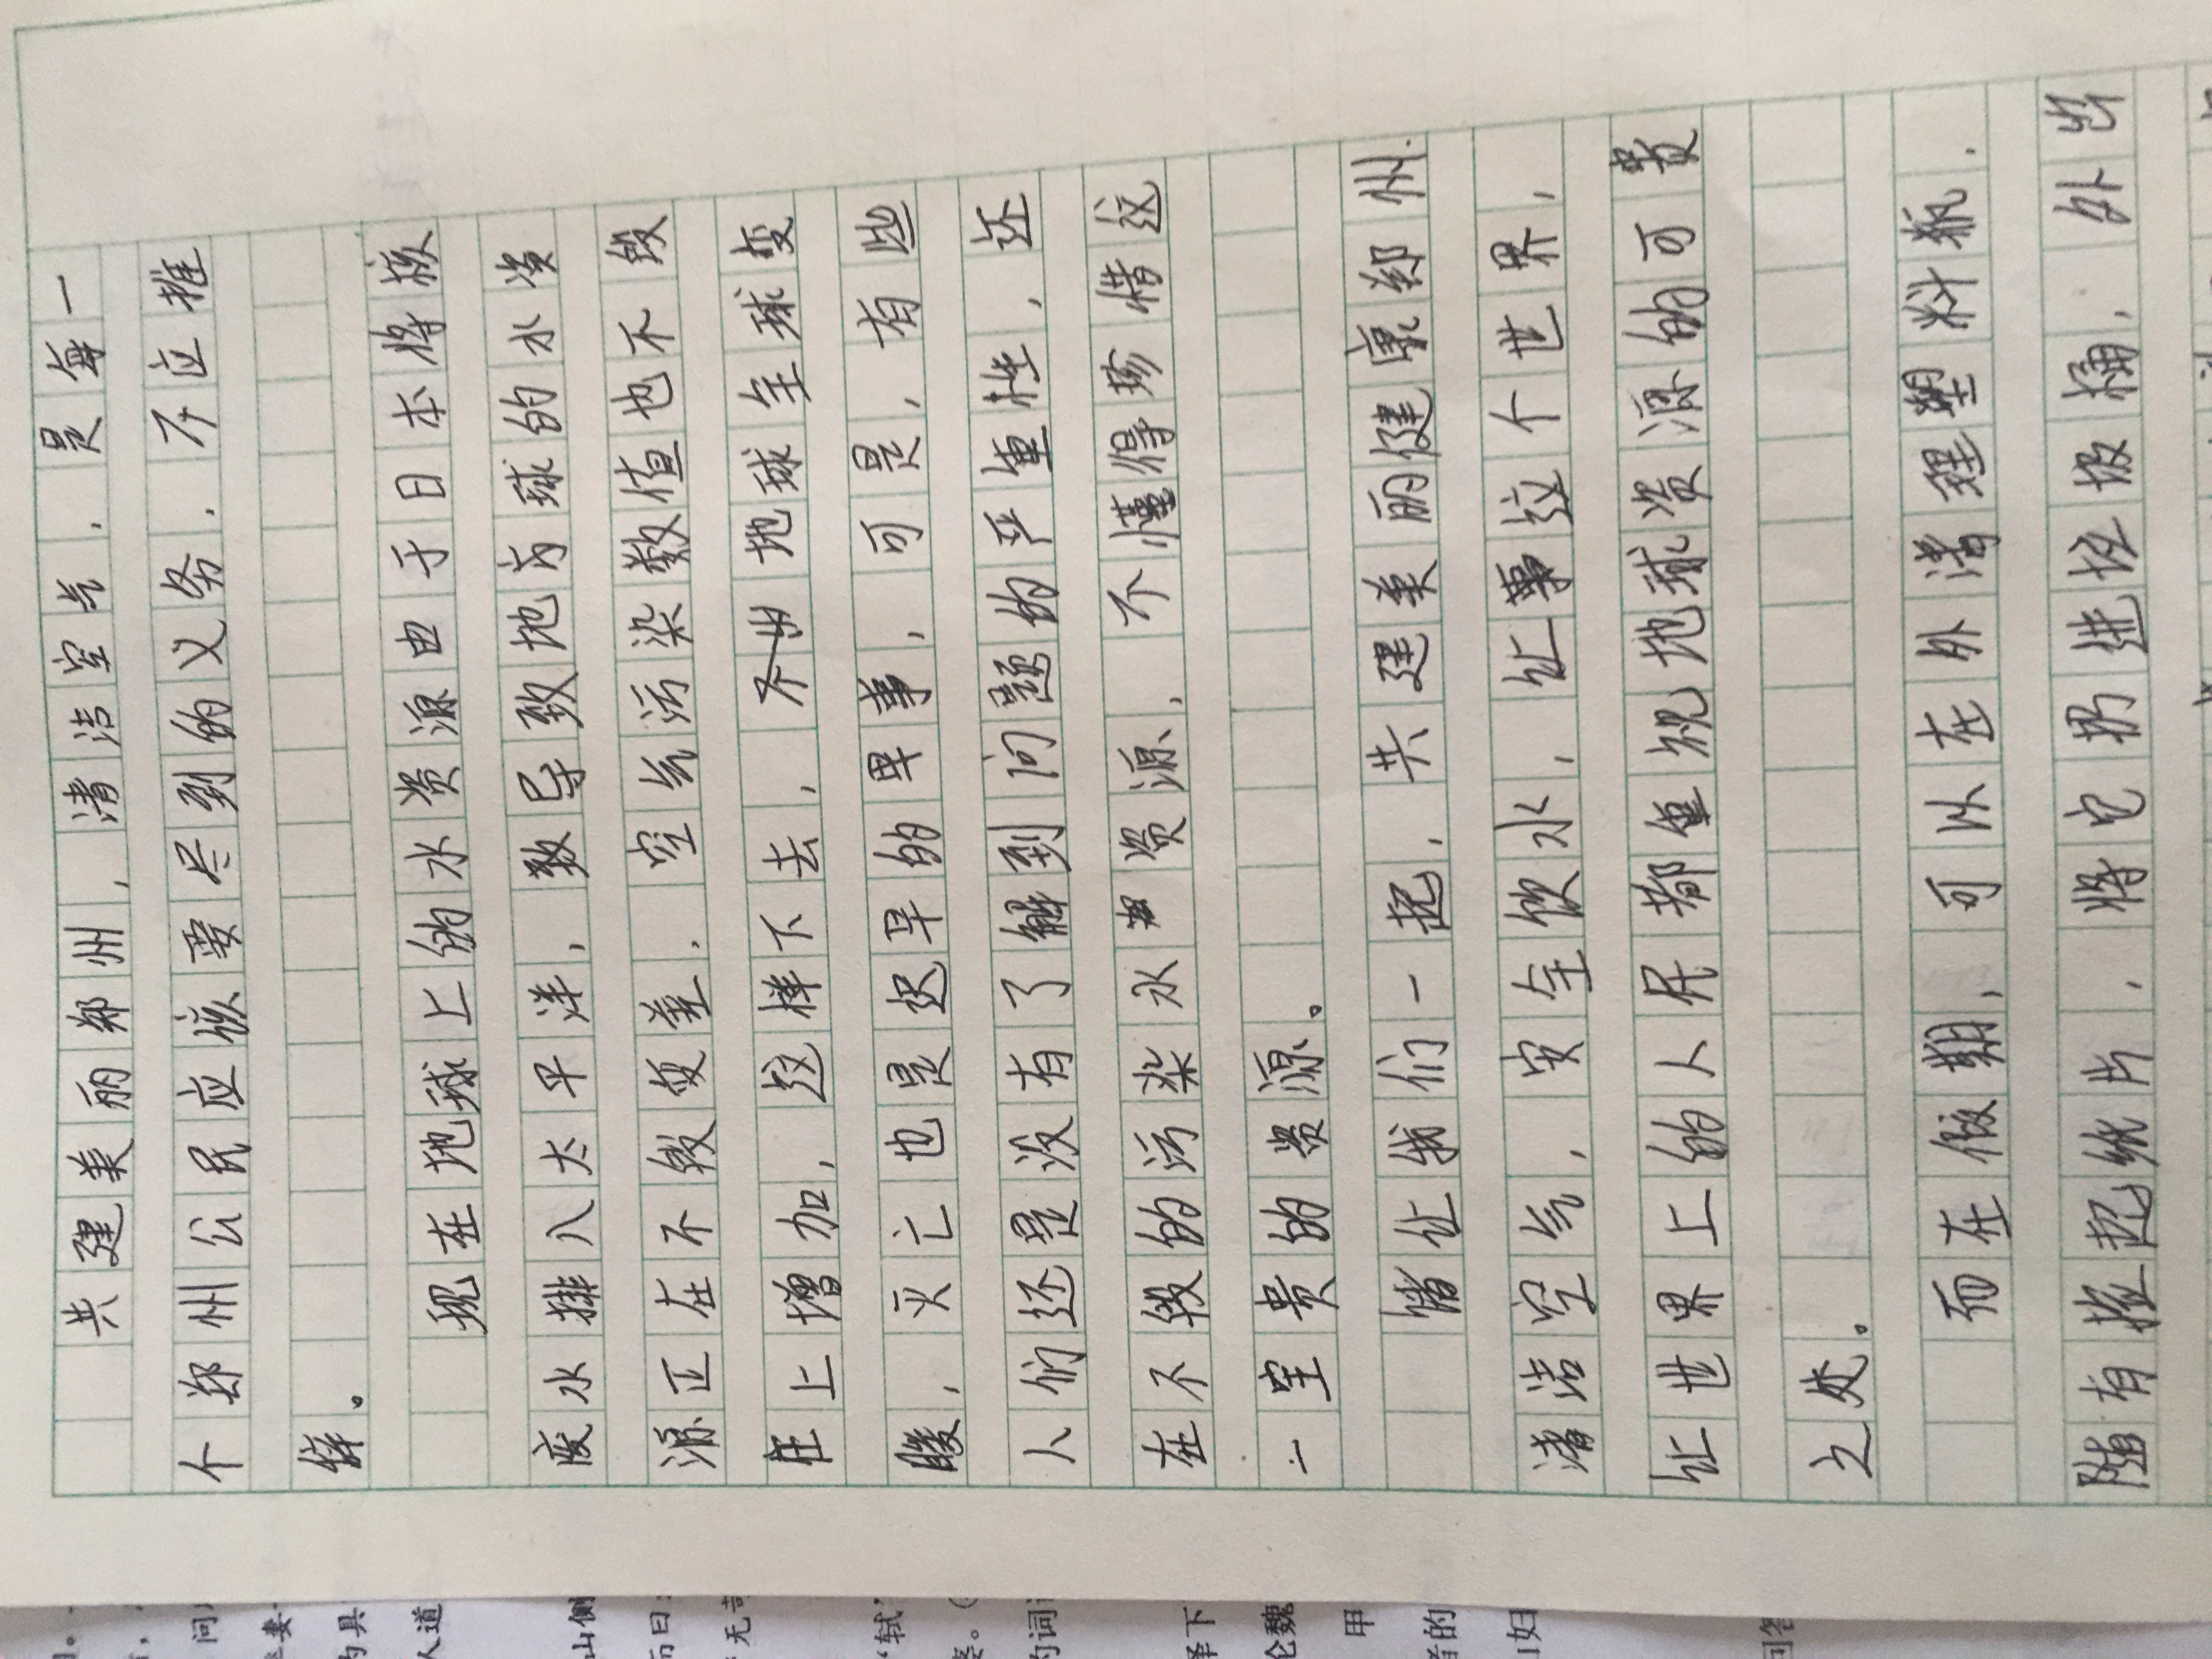 共建美丽郑州，清洁空气，是每一
个郑州公民应该要尽到的义务，不应推
辞。
现在地球上的水资源由于日本将核
废水排入太平洋，致导致地方球的水资
源正在不断变差，空气污染数值也不断
在上增加，这样下去，不出地球全球变
暖，灭亡也是迟早的早事，可是，有些
人们还是没有了解到问题的严重性，还
在不断的污染水资源，不懂得珍惜这
一宝贵的资源。
请让我们一起，共建美丽健康郑州.
清洁空气，安全饮水，让事这个世界，
让世界上的人民都重视地球资源的可贵
之处。
而在假期，可以在外清理塑料瓶.
随有捡起纸片，将它扔进垃圾桶，外出
山侧
而曰
的词
译下
论魏
甲
者的
妇
回答
问
妻
人道